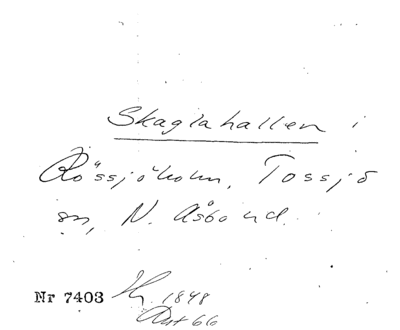 Skaglahallen i
Rössjöholm, Tossjö
sn, N. Åsbo hd.
Nr 7403 1848